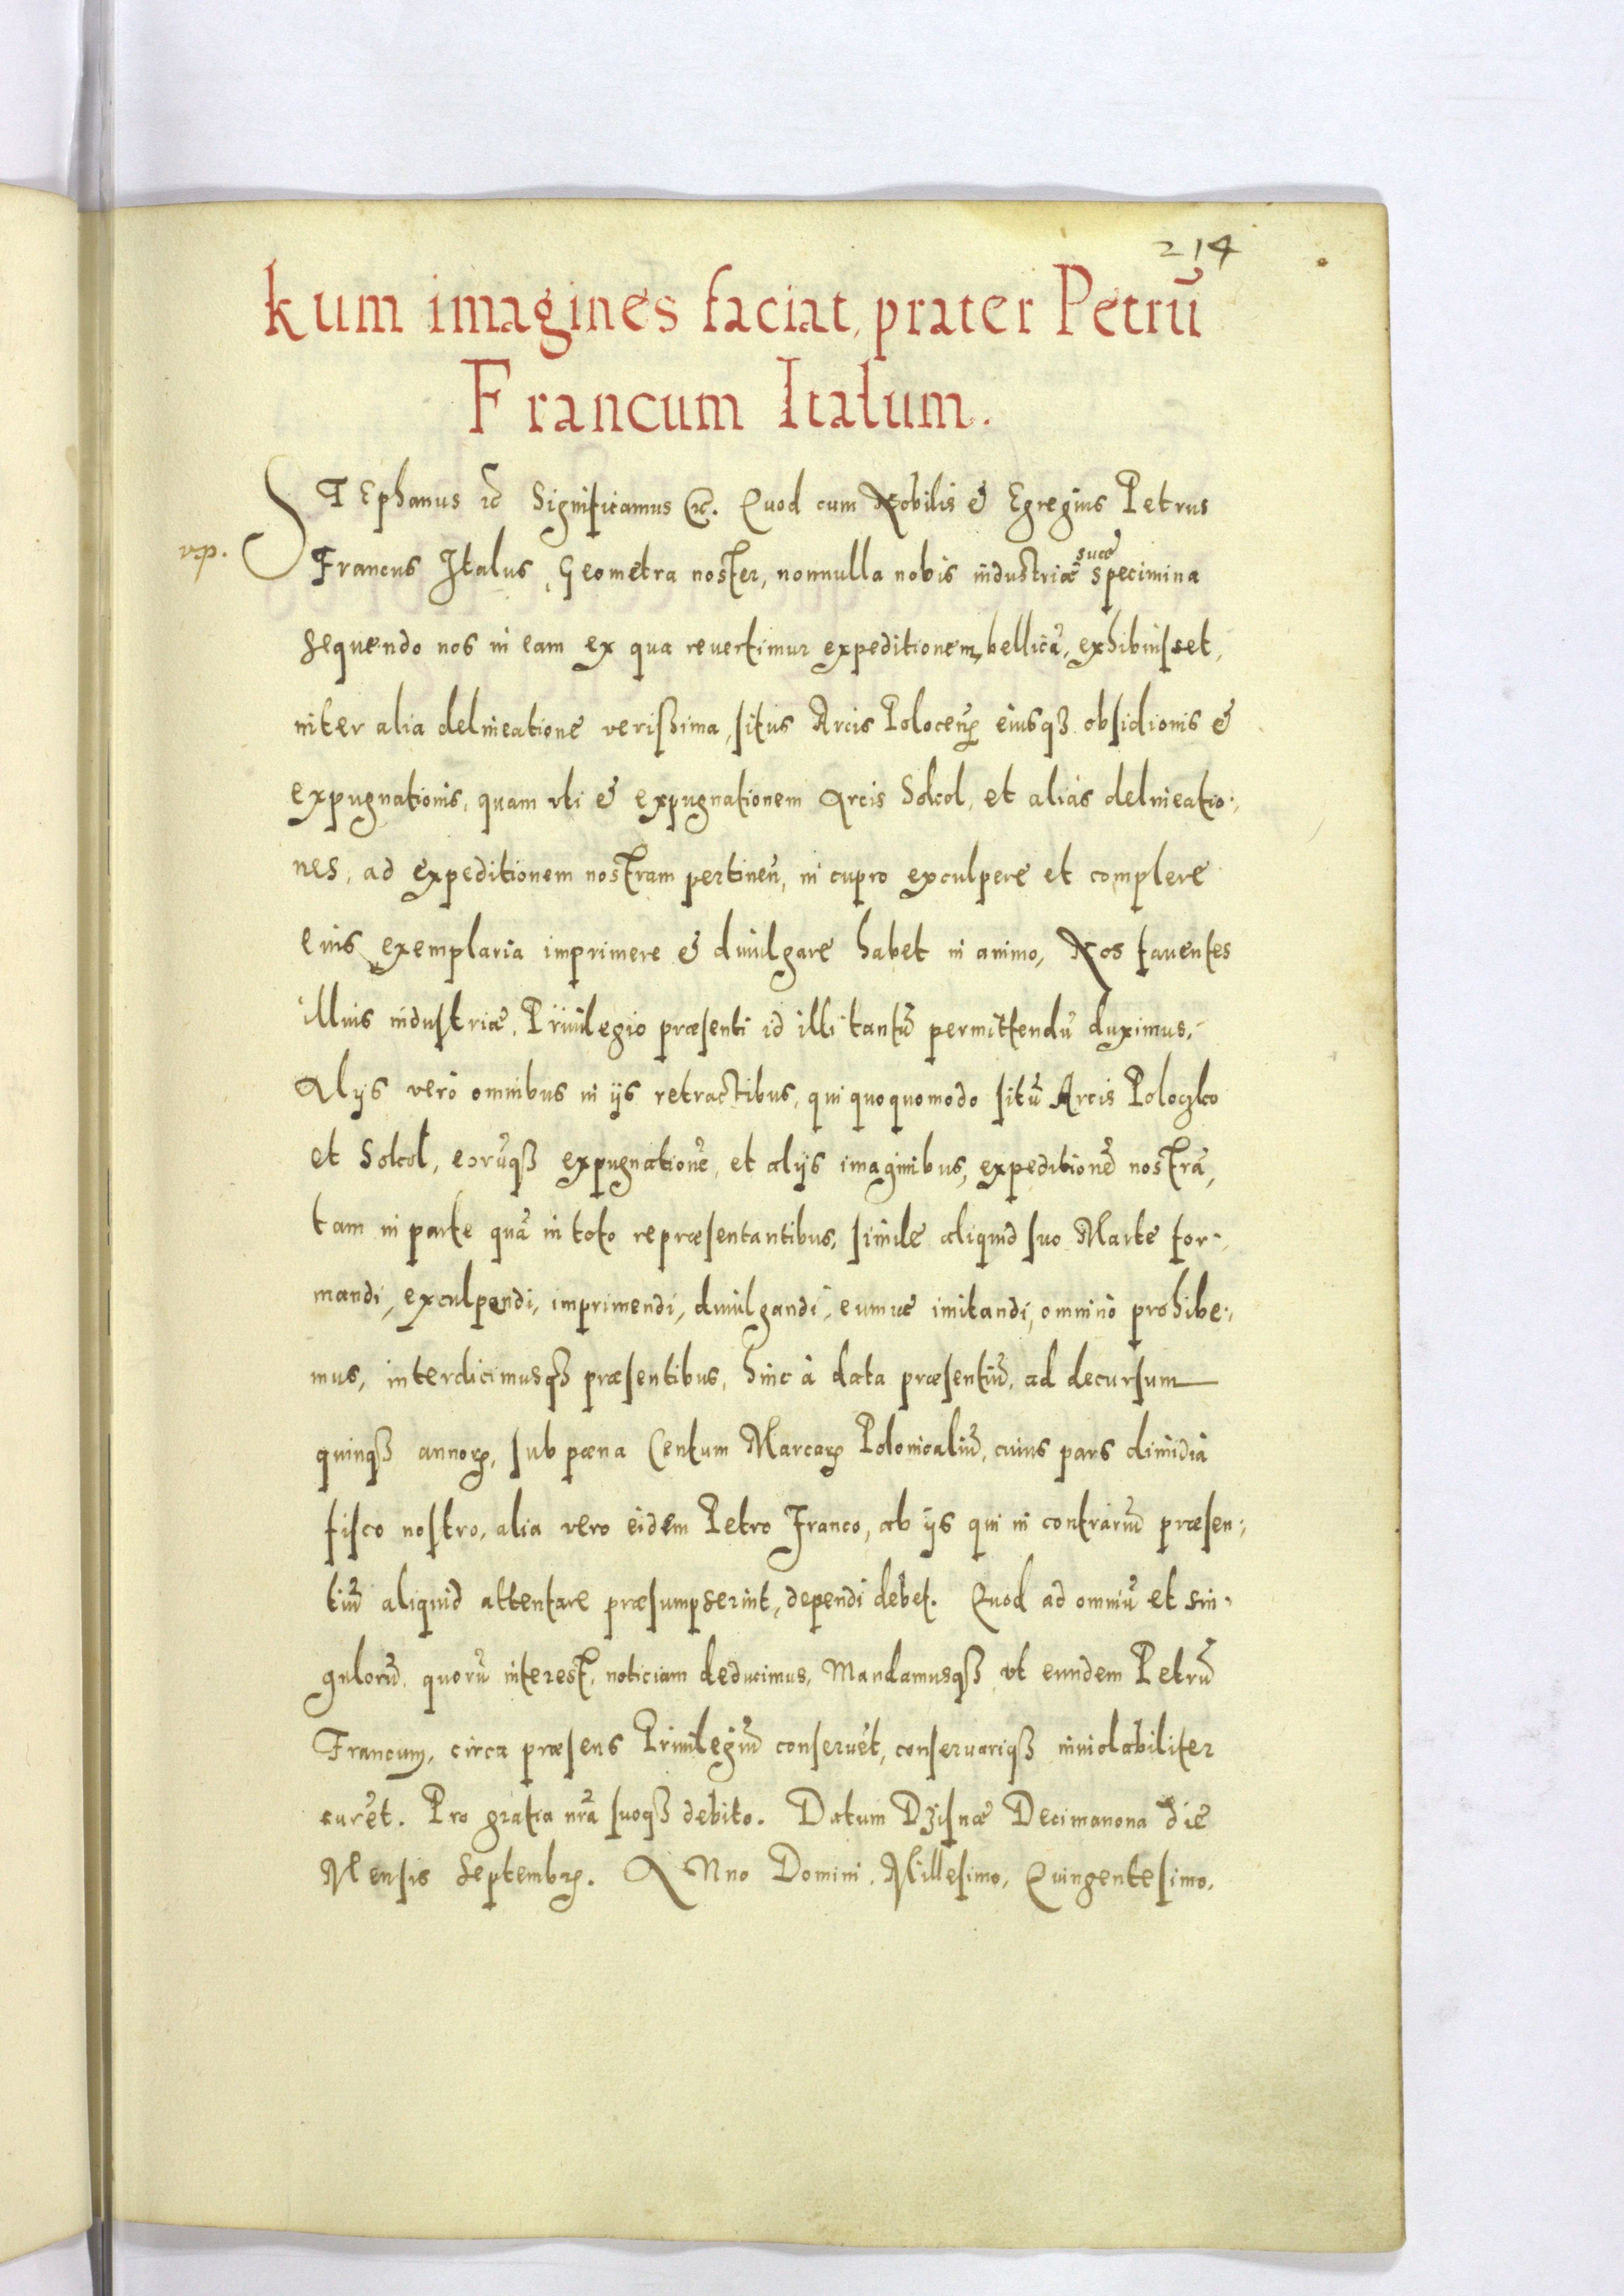 214
kum imagines faciat, præter Petrū
Francum Italum.
STEphanus ꝛc̄ Significamus ꝛc̄. Quod cum Nobilis & Egregius Petrus
vp.
Francus Italus, Geometra noster, nonnulla nobis industriæ suæ specimina
sequendo nos in eam ex qua reuertimur expeditionem, bellicā, exhibuisset,
inter alia delineationē verißima, situs Arcis Polocens eiusqꝫ obsidionis &
expugnationis, quam vti & expugnationem Arcis Sokol, et alias delineatio:
nes, ad expeditionem nostram pertinen̄, in cupro exculpere et complere
eius exemplaria imprimere & diuulgare habet in animo, Nos fauentes
illius industriæ, Priuilegio præsenti id illi tantū permittendū duximus,
Alijs verò omnibus in ijs retractibus, qui quoquomodo sitū Arcis Poloczko
et Sokol, eorūqꝫ expugnationē, et alijs imaginibus, expeditionē nostrā,
tam in parte quā in toto repræsentantibus, simile aliquid suo Marte for-
mandi, exculpendi, imprimendi, diuulgandi, eumue imitandi, omnino prohibe:
mus, interdicimusqꝫ præsentibus, hinc à data præsentiū, ad decursum
quinqꝫ annoꝝ, sub pæna Centum Marcaꝝ Polonicaliū, cuius pars dimidia
fisco nostro, alia vero eidem Petro Franco, ab ijs qui in contrariū præsen:
tiū aliquid attentare præsumpserint, dependi debet. Quod ad omniū et sin:
gulorū quorū interest, noticiam deducimus, Mandamusqꝫ vt eundem Petrū
Francum, circa præsens Priuilegiū conseruēt, conseruariqꝫ inuiolabiliter
curēt. Pro gratia nrā suoqꝫ debito. Datum Dzisnæ Decimanona die
Mensis Septembꝝ. ANno Domini, Millesimo, Quingentesimo,